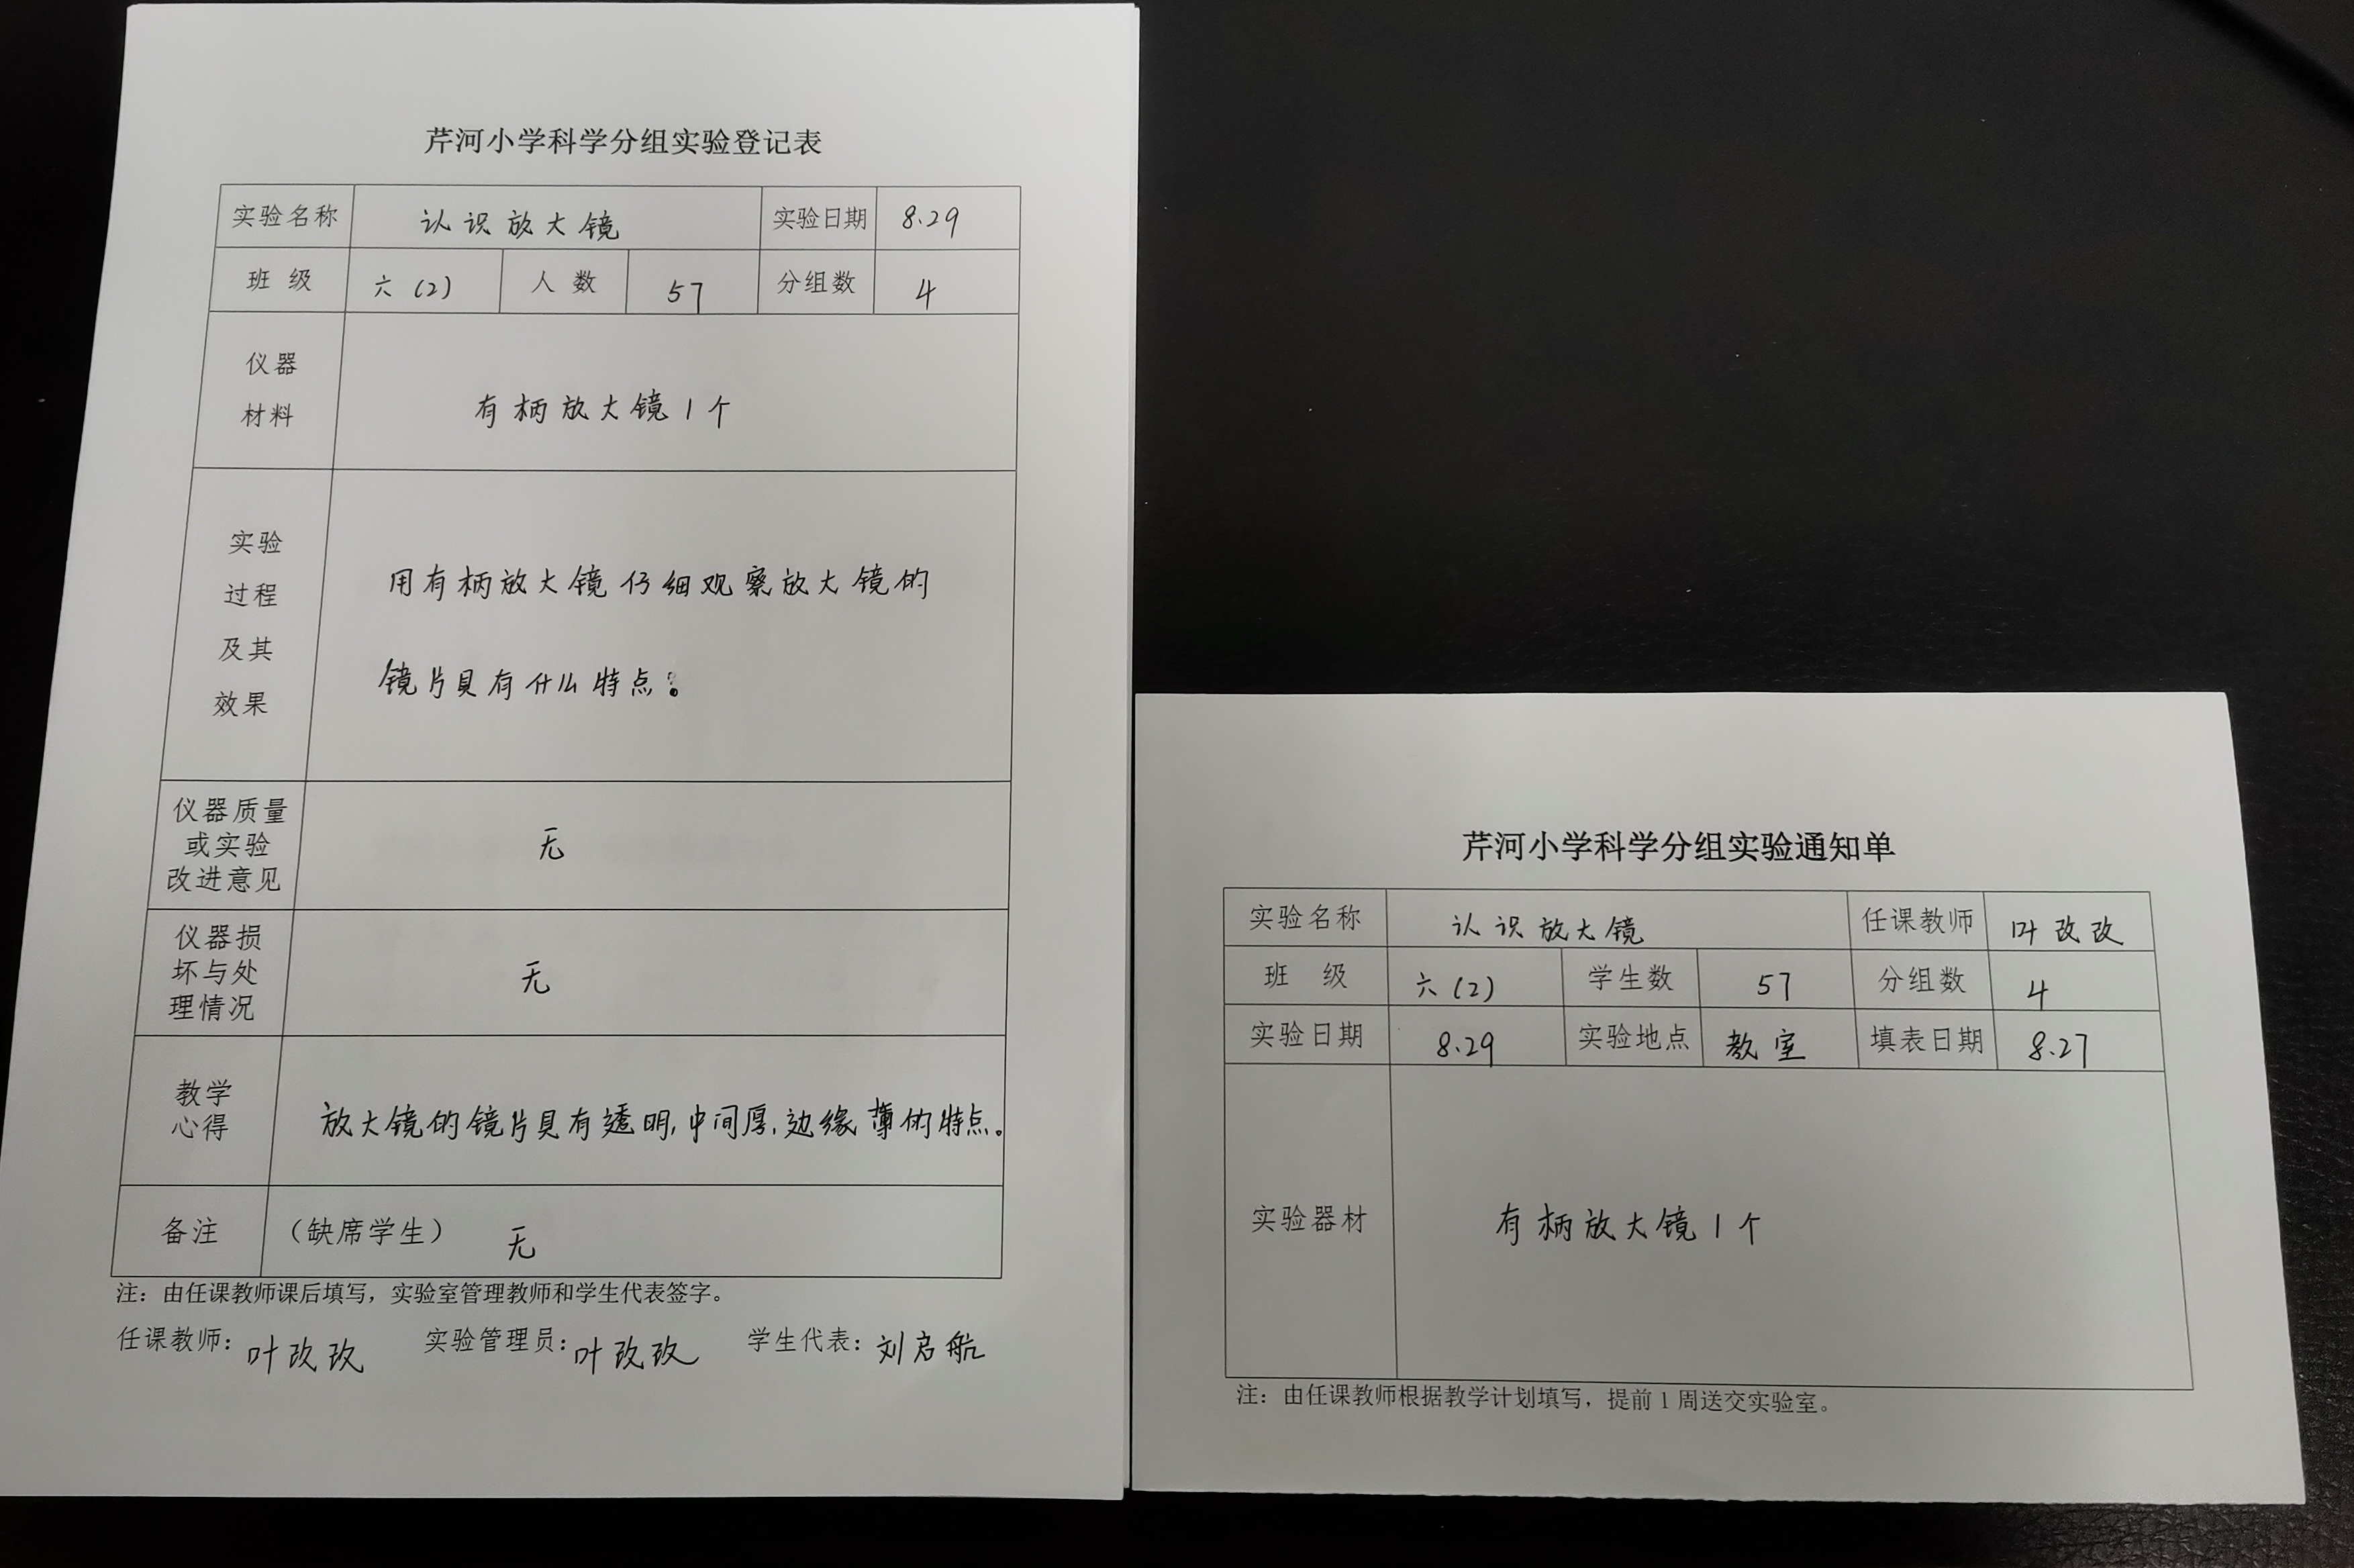 芹河小学科学分组实验登记表
实验名称 认识放大镜 实验日期 8.29
班 级 六(2) 人 数 57 分组数 4
仪器
材料
有柄放大镜1个
实验
过程
及其
效果
用有柄放大镜仔细观察放大镜的
镜片具有什么特点。
仪器质量
或实验
改进意见
无
仪器损
坏与处
理情况
无
教学
心得
放大镜的镜片具有透明,中间厚,边缘薄的特点。
备注 (缺席学生) 无
注:由任课教师课后填写,实验室管理教师和学生代表签字。
任课教师:叶改改 实验管理员:叶改改 学生代表:刘启航
芹河小学科学分组实验通知单
实验名称 认识放大镜 任课教师 叶改改
班 级 六(2) 学生数 57 分组数 4
实验日期 8.29 实验地点 教室 填表日期 8.27
实验器材 有柄放大镜1个
注:由任课教师根据教学计划填写,提前1周送交实验室。